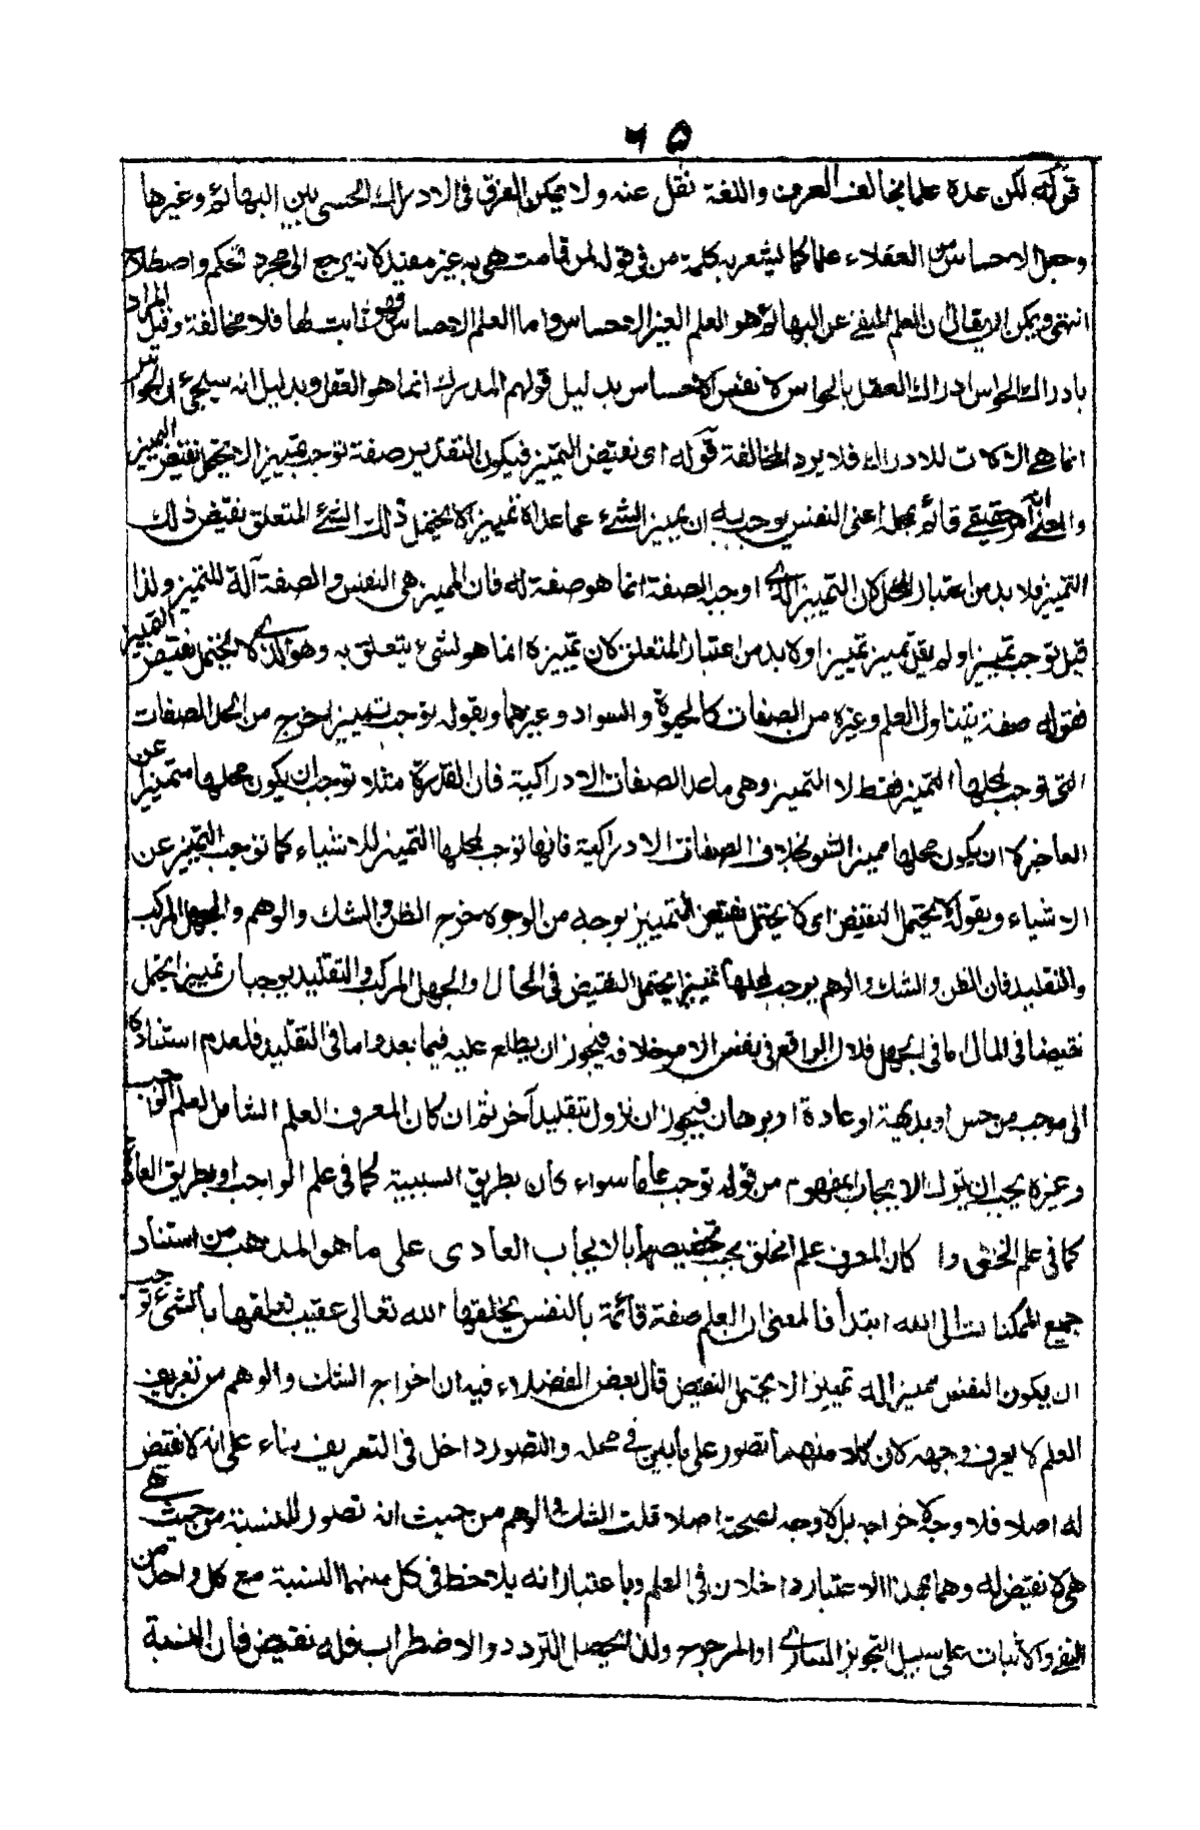 ٦٥
قوله لكن عده علما يخالف العرف واللغة نقل عنه ولا يمكن الفرق في الادراك الحسى بين البهائم وغيرها
وجعل الاحساس من العقلاء علما كما يشعر به كلمة من في قوله لمن قامت هي به غير مفيد لانه يرجع الى مجرد تحكم واصطلاح
انتهى ويمكن ان يقال ان العلم المنفى عن البهائم هو العلم الغير الاحساس واما العلم الاحساس فهو ثابت لها فلا مخالفة وقيل المراد
بادراك الحواس ادراك العقل بالحواس لا نفس الاحساس بدليل قولهم المدرك انما هو العقل وبدليل انه سيجئ ان الحواس
انما هي الآلات للادراك فلا يرد المخالفة قوله اى نقيض التميز فيكون التقدير صفة توجب تمييزا لا يحتمل نقيض التميز
والمعنى انه امر حقيقي قائم بمحله اعنى النفس يوجب له ان يميز الشئ عما عداه تمييزا لا يحتمل ذلك الشئ المتعلق نقيض ذلك
التميز فلا بد من اعتبار المحل لان التمييز الذي اوجب الصفة انما هو صفة له فان المميز هي النفس والصفة آلة للتميز ولذا
قيل توجب تمييزا ولم يقل تميز تمييزا ولا بد من اعتبار المتعلق لان تمييزه انما هو لشئ يتعلق به وهو الذي لا يحتمل نقيض التمييز
فقوله صفة يتناول العلم وغيره من الصفات كالحيوة والسواد وغيرهما وبقوله توجب تمييزا خرج من الحد الصفات
التى توجب لمحلها التميز فقط لا التمييز وهى ما عدا الصفات الادراكية فان القدرة مثلا توجب ان يكون محلها متميزا عن
العاجز لا ان يكون محلها مميزا لشئ بخلاف الصفات الادراكية فانها توجب لمحلها التميز للاشياء كما توجب التميز عن
الاشياء وبقوله لا يحتمل النقيض اى لا يحتمل نقيض التمييز بوجه من الوجوه خرج الظن والشك والوهم والجهل المركب
والتقليد فان الظن والشك والوهم يوجب لمحلها تمييزا يحتمل النقيض في الحال والجهل المركب والتقليد يوجبان تمييزا يحتمل
نقيضا في المال اما في الجهل فلان الواقع في نفس الامر خلافه فيجوز ان يطلع عليه فيما بعد واما في التقليد فلعدم استناده
الى موجب من حس او بديهة او عادة او برهان فيجوز ان يزول بتقليد آخر ثم ان كان المعرف العلم الشامل لعلم الواجب
وغيره يجب ان يترك الايجاب المفهوم من قوله توجب عاما سواء كان بطريق السببية كما في علم الواجب او بطريق العادة
كما في علم الخلق وان كان المعرف علم الخلق يجب تخصيصها بالايجاب العادى على ما هو المذهب من استناد
جميع الممكنات الى الله ابتدأ فالمعنى ان العلم صفة قائمة بالنفس يخلقها الله تعالى عقيب تعلقها بالشئ توجب
ان يكون النفس مميزا له تمييزا لا يحتمل النقيض قال بعض الفضلاء فيه ان اخراج الشك والوهم من تعريف
العلم لا يعرف وجهه لان كلا منهما تصور على ما بين في محله والتصور داخل في التعريف بناء على انه لا نقيض
له اصلا فلا وجه لاخراجه بل لا وجه لصحته اصلا قلت الشك والوهم من حيث انه تصور للنسبة من حيث هي
هى لا نقيض له وهما بهذا الاعتبار داخلان في العلم وباعتبار انه يلاحظ في كل منهما النسبة مع كل واحد من
النفي والاثبات على سبيل التجويز المساوى او المرجوح ولذا يحصل التردد والاضطراب فله نقيض فان النسبة